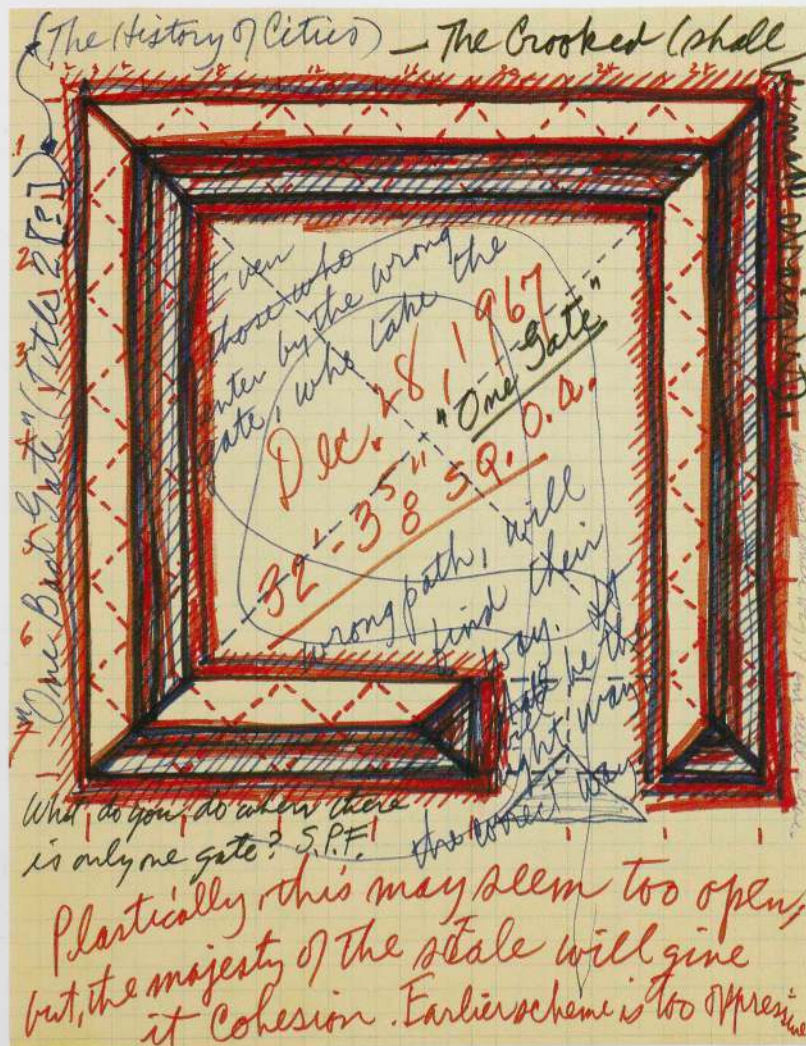 (The History of Cities) — The Crooked (shall
"One Bad Gate" (Title 2[?])
Even
those who
enter by the wrong
gate, who take the
Dec. 28, 1967
"One Gate"
32' - 35" 8 SQ. O.A.
wrong path, will
find their
way. It
will be the
right way,
the correct way
What do you do when there
is only one gate? S.P.F.
Plastically, this may seem too open,
but, the majesty of the scale will give
it cohesion. Earlier scheme is too oppressive